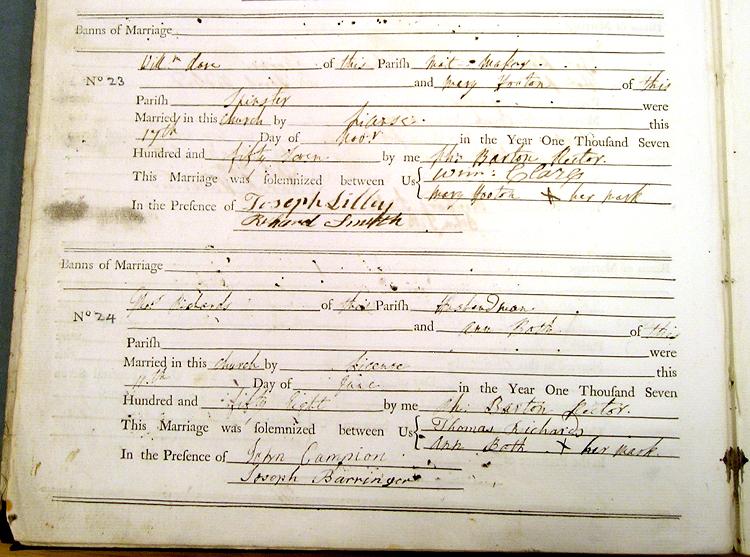 Banns of Marriage
Will m of this Parish
No 23 and Mary Horton of this
Parish Spinster were
Married in this Church by License this
17th Day of Novr in the Year One Thousand Seven
Hundred and fifty Seven by me Barton Rector.
This Marriage was solemnized between Us Wm:
Mary Horton X her mark
In the Presence of Joseph Lilley
Richard Smith
Banns of Marriage
Thos Richards of this Parish Husbandman
No 24 and Ann Both of this
Parish were
Married in this Church by License this
11th Day of June in the Year One Thousand Seven
Hundred and fifty Eight by me Barton Rector.
This Marriage was solemnized between Us Thomas Richards
Ann Both X her mark
In the Presence of John Campion
Joseph Barringer